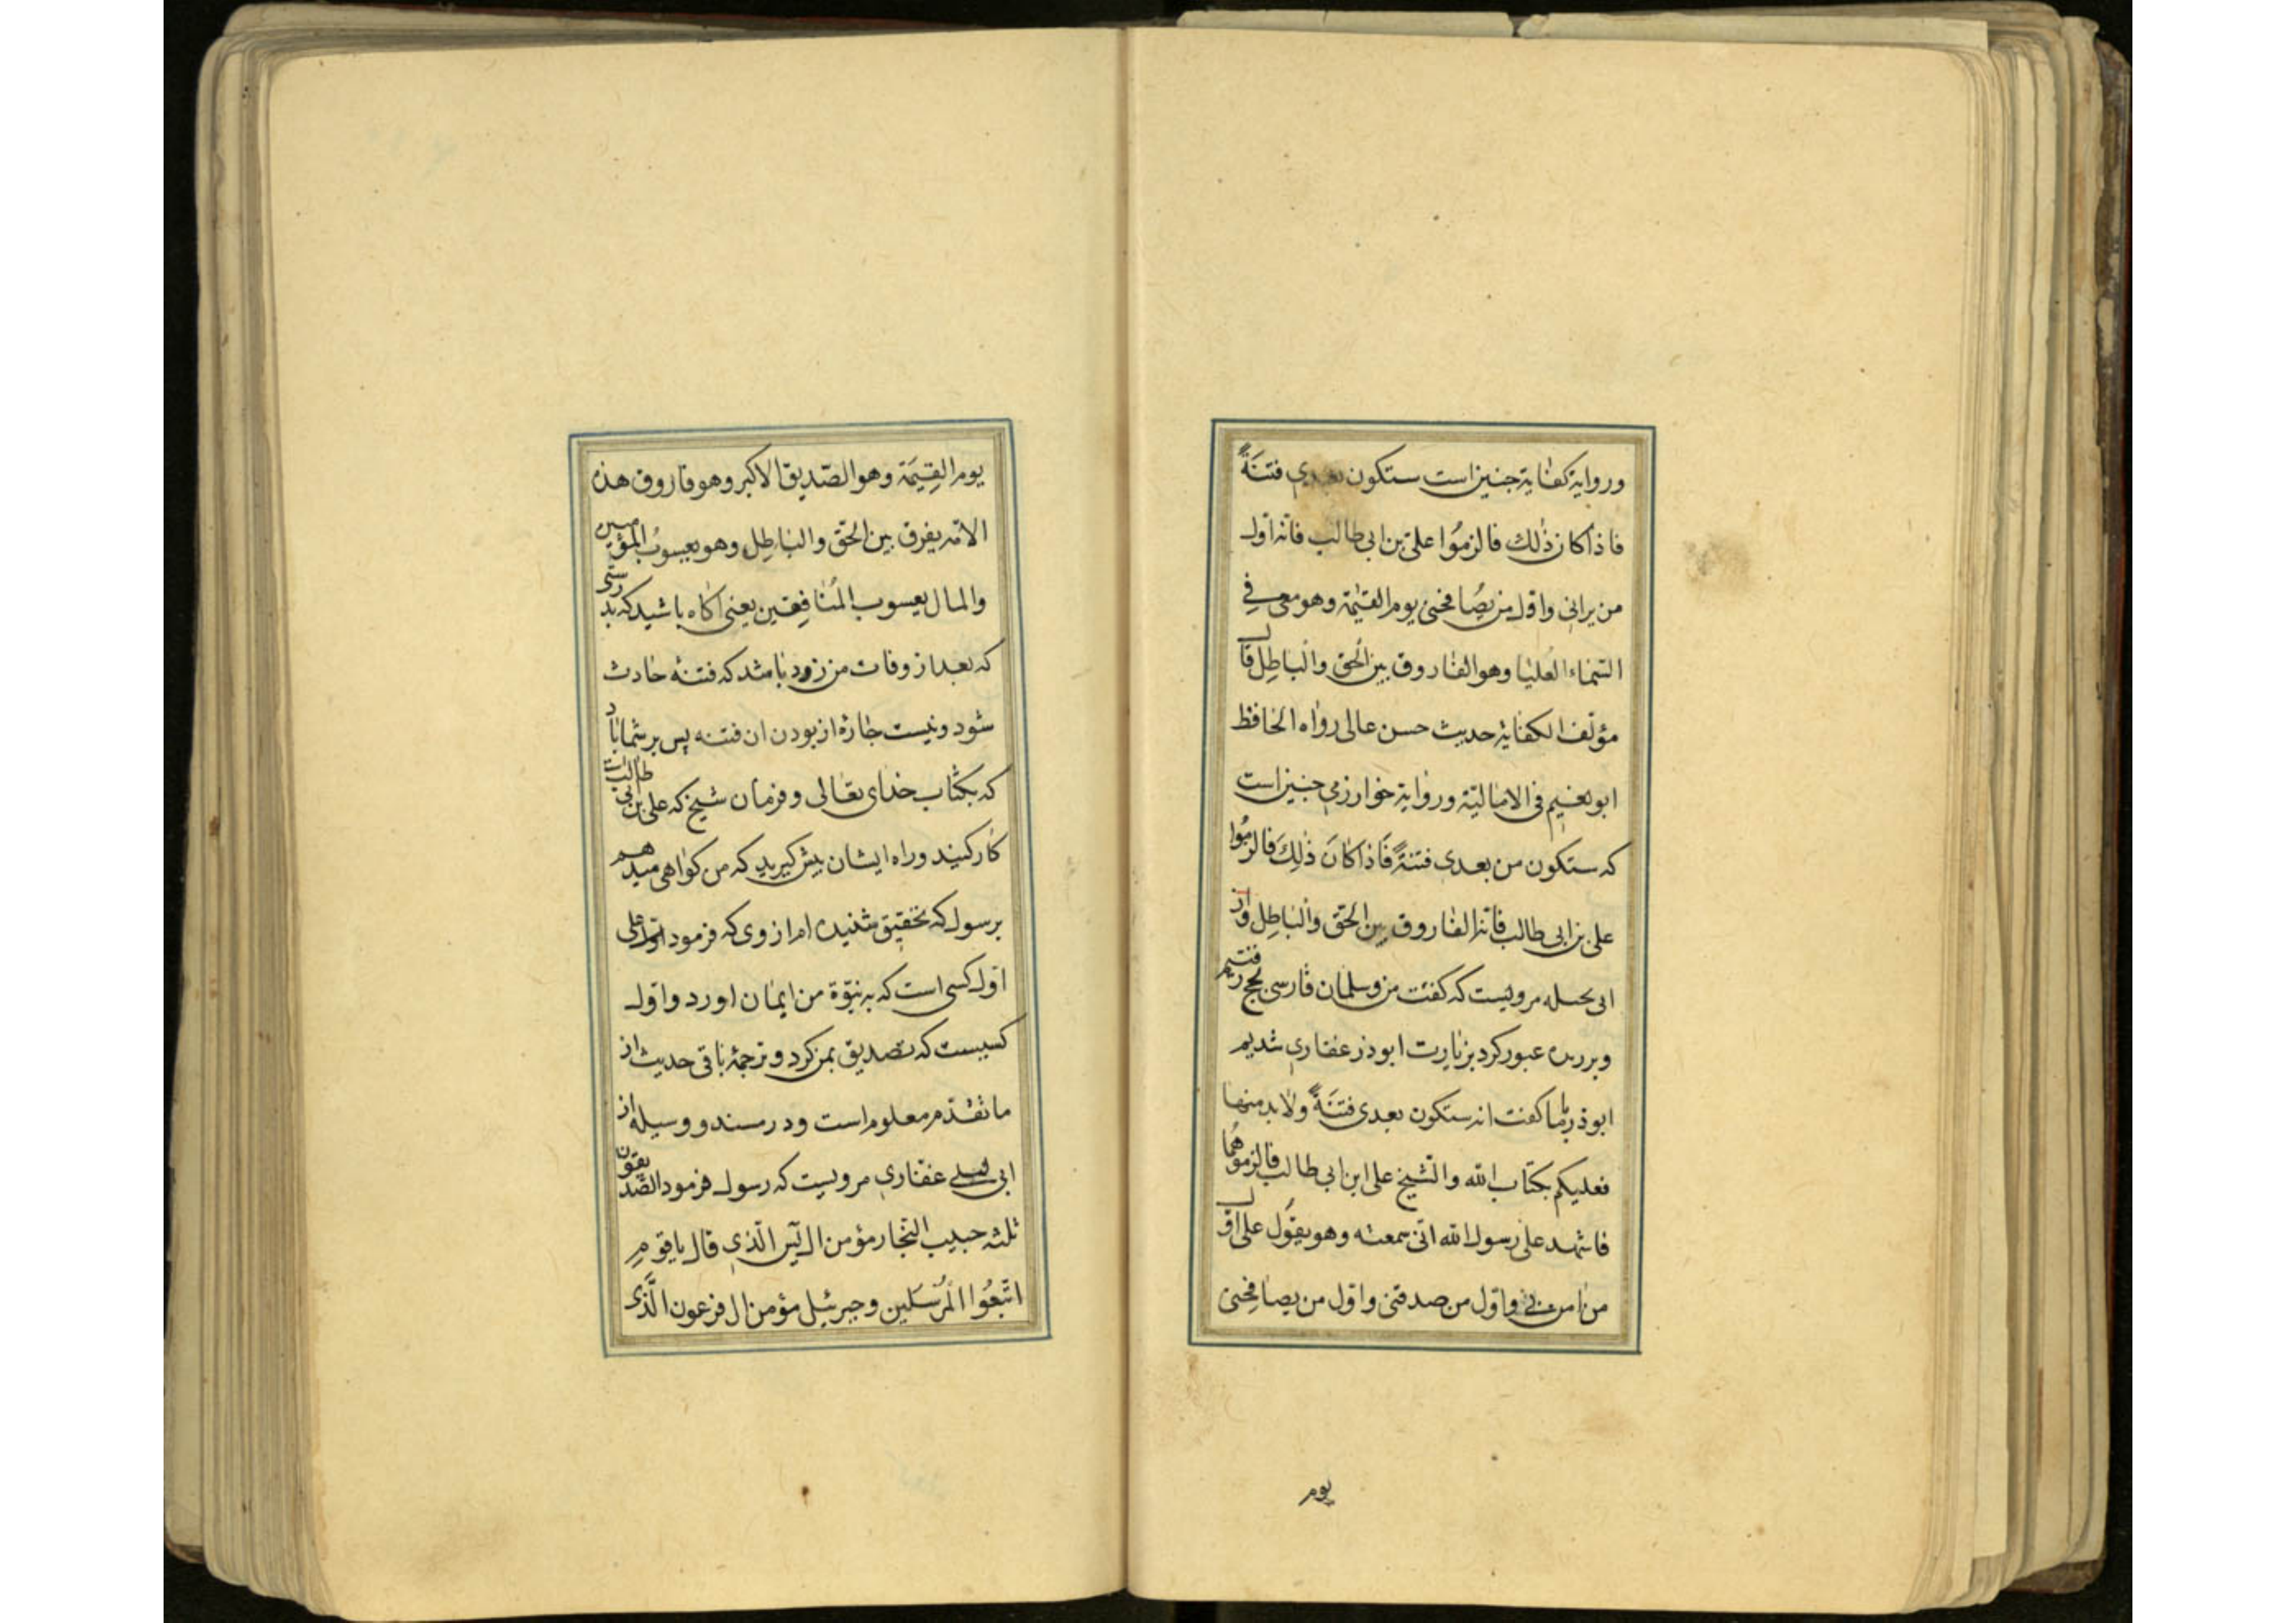 وروایة کفایة چنین است ستکون بعدی فتنةً
فاذا کان ذٰلك فالزمُوا علیّ بن ابی طالب فانّه اوّل
من یرانی واوّل من یصُافحنی یوم القیٰمة وهو معی فِی
السّماء العُلیا وهو الفاروق بین الحَق والباطِل قال
مؤلّف الکفایة حدیث حسن عالی رواه الحافظ
ابو نعیم فی الامالیّة وروایة خوارزمی چنین است
که ستکون من بعدی فتنةً فَاذا کانَ ذٰلِكَ فالزمُوا
علی بن ابی طالب فانّه الفاروق بین الحقّ والباطِل واز
ابی مرویست که کفت من وسلمان فارسی بحج رفتیم
وبر عبور کرد بزیارت ابوذر غفاری شدیم
ابوذر بما کفت انه ستکون بعدی فتنَةً ولابد منها
فعلیکم بکتاب الله والشّیخ علی ابن ابی طالب فالزموهُما
فاشهد علی رسول الله انّی سمعته وهو یقوُل علی اوّل
من امن بی واوّل من صدقنی واوّل من یصافِحنی
یوم
یوم القِیٰمَة وهو الصّدیق الاکبر وهو فاروق هذه
الامّه یفرق بین الحقّ والباطِل وهو یعسوبُ المؤمنین
والمال یعسوب المُنافِقین یعنی اکاه باشید که بدرستی
که بعد از وفات من زود باشد که فتنهٔ حادث
شود ونیست چارهٔ از بودن ان فتنه پس بر شما باد
که بکتاب خدای تعالی وفرمان شیخ که علی بن ابی طالب است
کار کنید وراه ایشان پیش کیرید که من کواهی میدهم
برسول که بتحقیق شنیده ام از وی که فرمود اوّل علی
اوّل کسی است که به نبوّة من ایمان اورد واوّل
کسیست که تصدیق بمن کرد وترجمهٔ باقی حدیث از
ما تقدّم معلوم است ودر مسند ووسیله از
ابی لیلی غفاری مرویست که رسول فرمود الصّدیقون
ثلثه حبیب النجّار مؤمن ال یٓس الّذی قال یا قومِ
اتّبعُوا المُرْسَلین وحبرئیل مؤمن ال فرعون الَّذی